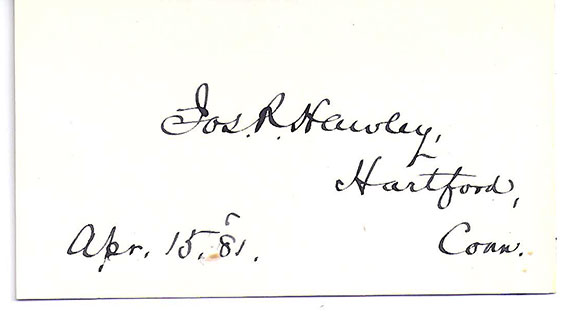 Jos. R. Hawley,
Hartford,
Conn.
Apr. 15. '81.